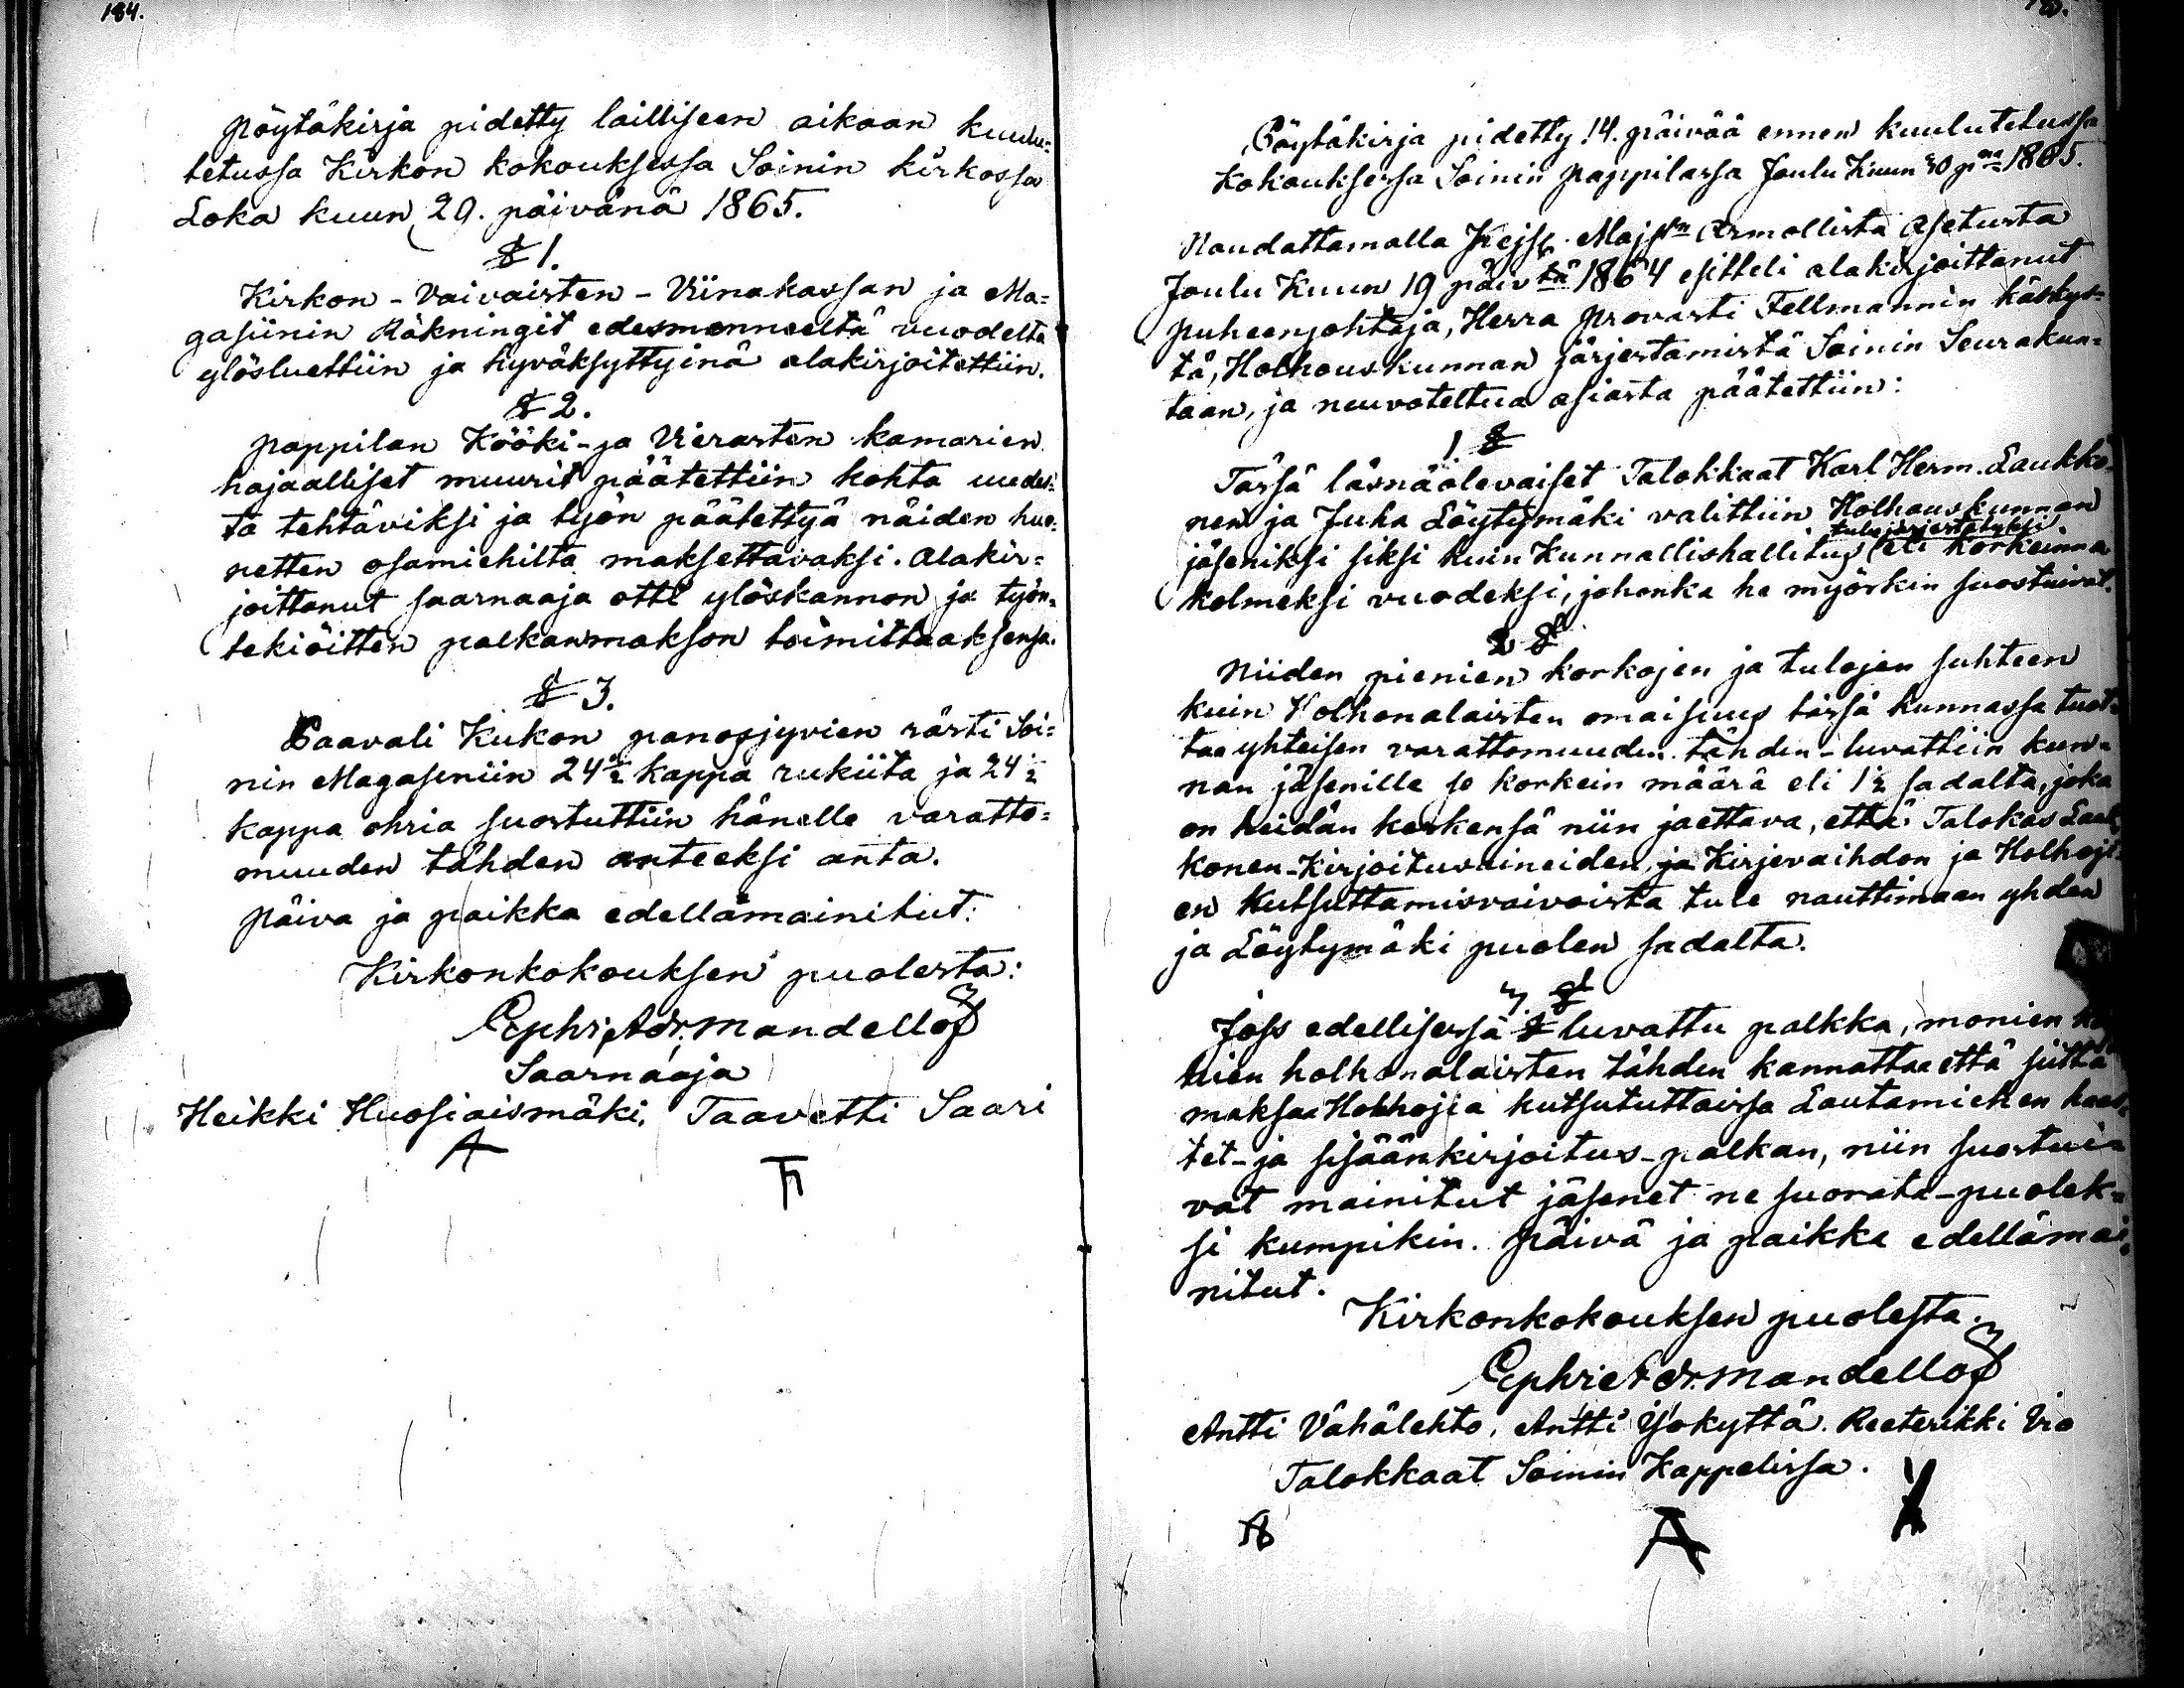 184.
Pöytäkirja pidetty lailliseen aikaan kuulu=
tetussa Kirkon kokouksessa Soinin kirkossa
Loka kuun 29. päivänä 1865.
§ 1.
Kirkon - Vaivaisten - Viinakassan ja Ma=
gasiinin Räkningit edesmenneeltä vuodelta
ylösluettiin ja hyväksyttyinä alakirjoitettiin.
§ 2.
Pappilan Kööki- ja Vierasten kamarien
hajaalliset muurit päätettiin kohta uudes=
ta tehtäviksi ja työn päätettyä näiden huo=
netten osamiehiltä maksettavaksi. Alakir=
joittanut saarnaaja otti ylöskannon ja työn=
tekiöitten palkanmakson toimittaaksensa.
§ 3.
Paavali Kukon panosjyvien rästi Soi=
nin Magaseniin 24 1/2 kappa rukiita ja 24 1/2
kappa ohria suostuttiin hänelle varatto=
muuden tähden anteeksi anta.
Päiva ja paikka edellämainitut:
Kirkonkokouksen puolesta:
Ephr. Adr. Mandellöf
Saarnaaja
Heikki Huosiaismäki. Taavetti Saari
Pöytäkirja pidetty 14. päivää ennen kuulutetussa
Kokouksessa Soinin Pappilassa Joulu Kuun 30 pnä 1865.
Noudattamalla Kejs. Maj:stn Armollista Asetusta
Joulu Kuun 19 päivtä 1864 esitteli alakirjoittanut
Puheenjohtaja, Herra Provasti Fellmannin käskys=
tä, Holhouskunnan järjestämistä Soinin Seurakun=
taan, ja neuvoteltua asiasta päätettiin:
1 §
Tässä läsnäolevaiset Talokkaat Karl Herm. Laukko=
nen ja Juha Löytymäki valittiin Holhouskunnan
tule järjestetyksi
jäseniksi siksi kuin Kunnallishallitus eli korkeinna
kolmeksi vuodeksi, johonka he myöskin suostuivat.
2 §
Niiden pienien korkojen ja tulojen suhteen
kuin Holhonalaisten omaisuus tässä kunnassa tuot=
taa yhteisen varattomuuden tähden - luvattiin kun=
nan jäsenille se korkein määrä eli 1 1/2 sadalta, joka
on heidän keskensä niin jaettava, että Talokas Lauk
konen - Kirjoitusaineiden, ja Kirjevaihdon ja Holhoji=
en Kutsuttamisvaivoista tule nauttimaan yhden
ja Löytymäki puolen sadalta.
3 §
Joss edellisessä § luvattu palkka, monien
hien holhonalaisten tähden kannattaa että siitä
maksaa Holhojia kutsututtaissa Lautamiehen haas=
tet- ja sisäänkirjoitus-palkan, niin suostui=
vat mainitut jäsenet ne suorata-puolek=
si kumpikin. Päivä ja paikka edellämai=
nitut.
Kirkonkokouksen puolesta.
Ephr. Adr. Mandellöf
Antti Vähälehto. Antti Yökyttä. Reeterikki Vio
Talokkaat Soinin Kappelissa.